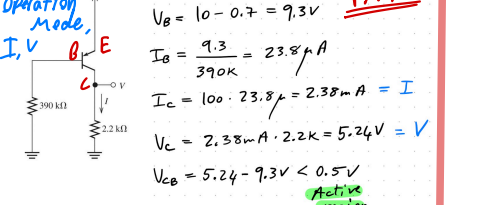 Operation
Mode,
I, V
B
E
C
V
I
390 kΩ
2.2 kΩ
V_B = 10 - 0.7 = 9.3V
I_B = 9.3 / 390K = 23.8 μA
I_C = 100 · 23.8μ = 2.38mA = I
V_C = 2.38mA · 2.2K = 5.24V = V
V_CB = 5.24 - 9.3V < 0.5V
Active